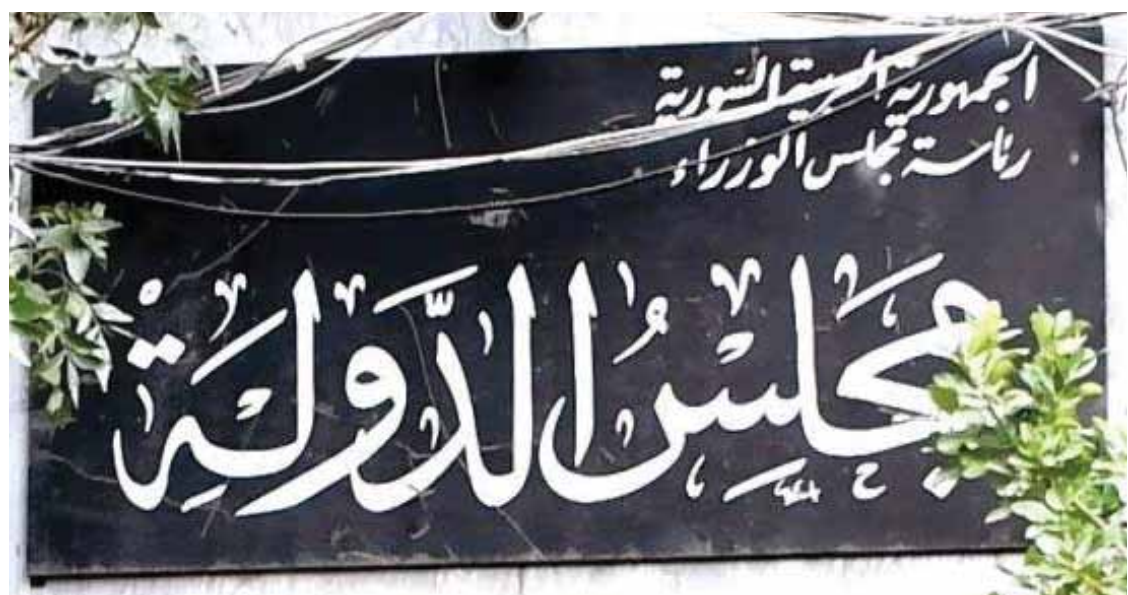 الجمهورية العربية السورية
رئاسة مجلس الوزراء
مجلسُ الدَّولةِ